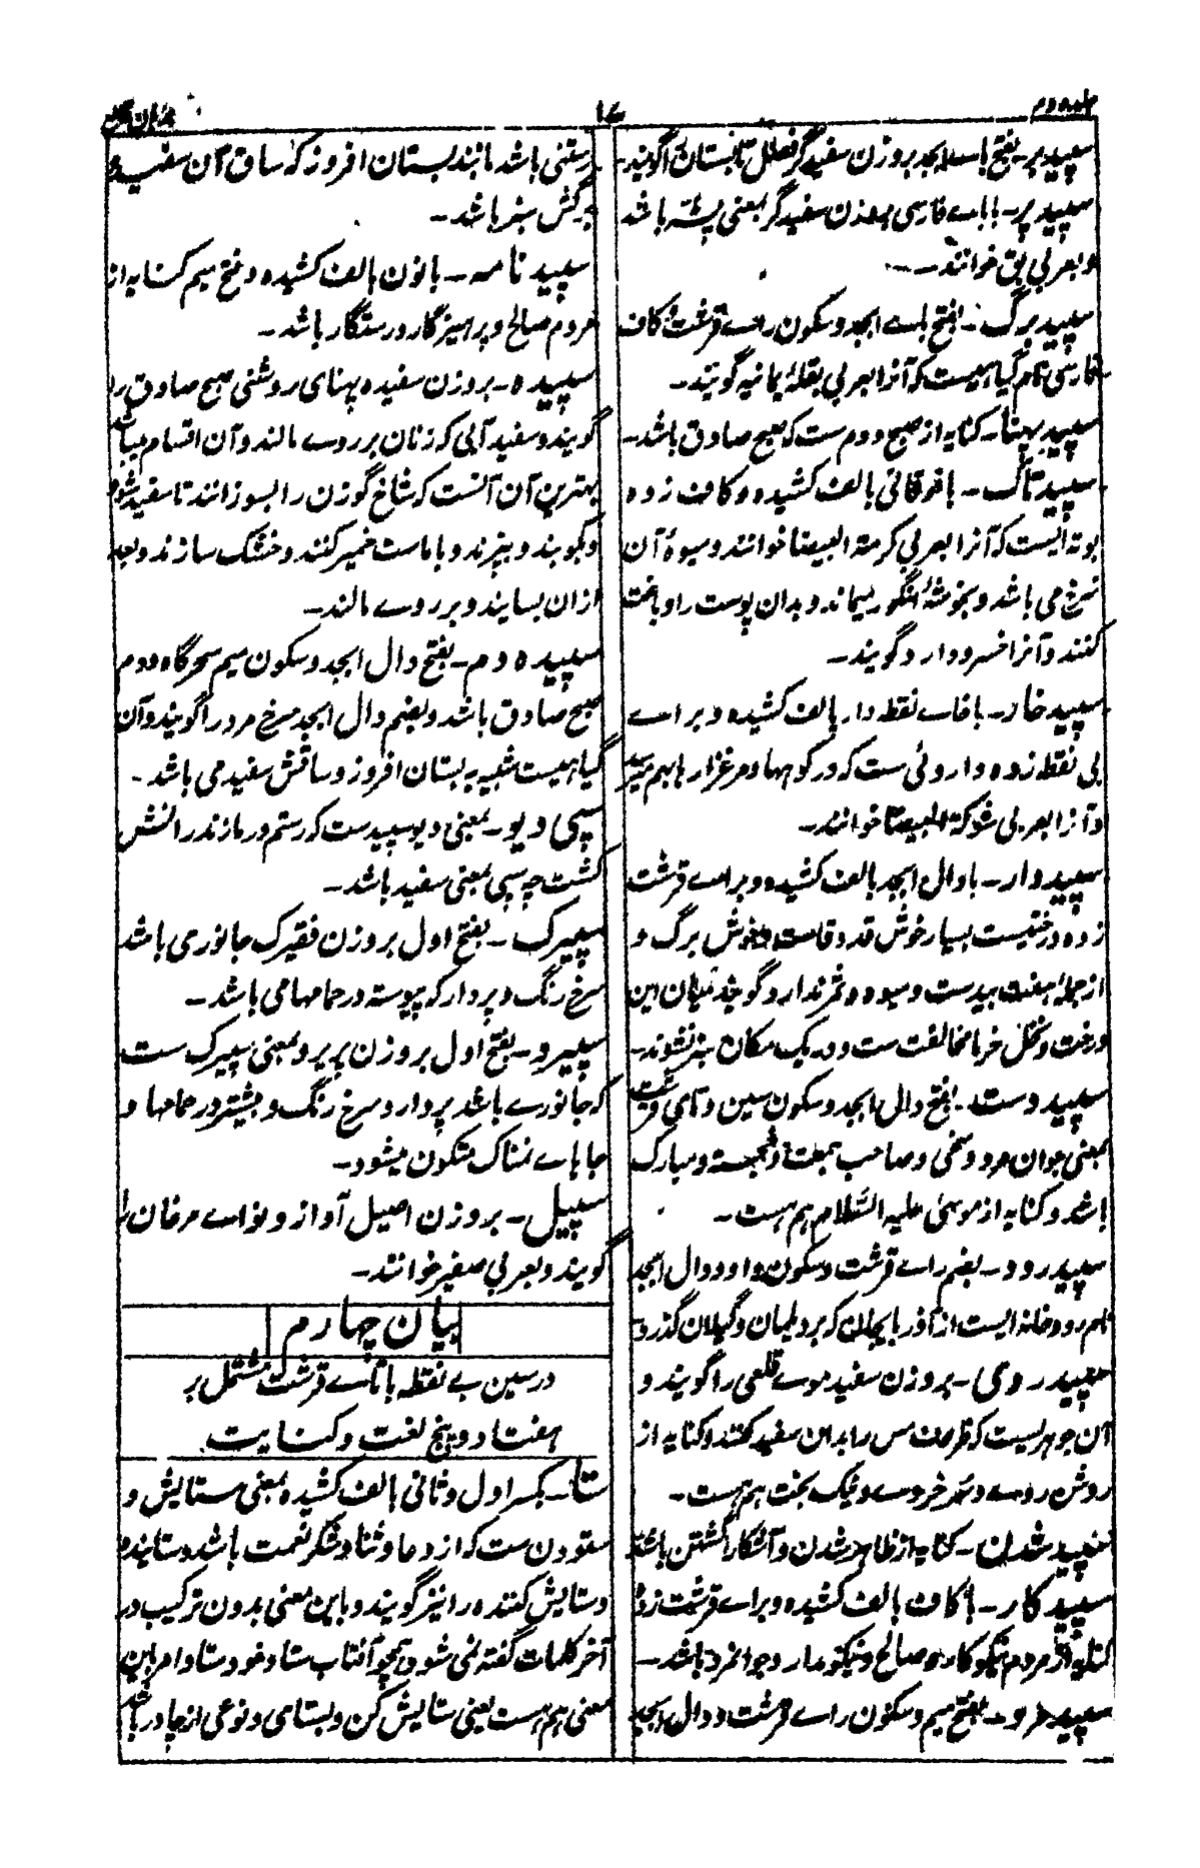 جلد دوم
۱۷
برهان قاطع
سپید بر۔ بفتح بای ابجد بروزن سفید گر فصل تابستان را گویند۔
سپید پر۔ بابای فارسی بروزن سفید گر بمعنی پشه باشد
و بعربی بق خوانند۔
سپید برگ۔ بفتح بای ابجد و سکون رای قرشت و کاف
فارسی نام گیاهیست که آنرا بعربی بقلهٔ یمانیه گویند۔
سپید پهنا۔ کنایه از صبح دوم ست که صبح صادق باشد۔
سپید تاک۔ با فوقانی بالف کشیده و کاف زده
بوته ایست که آنرا بعربی کرمة البیضا خوانند و میوهٔ آن
سرخ می باشد و بخوشهٔ انگور میماند و بدان پوست را دباغت
کنند و آنرا خسرو دارو گویند۔
سپید خار۔ با خاے نقطه دار بالف کشیده و براے
بی نقطه زده داروئی ست که در کوهها و مرغزارها بهم میرسد
و آنرا بعربی شوکة البیضا خوانند۔
سپیدار۔ با دال ابجد بالف کشیده و براے قرشت
زده درختیست بسیار خوش قد و قامت و خوش برگ و
از جملهٔ هفت بیدست و میوه و ثمر ندارد و گویند میان این
درخت و نخل خرما مخالفت ست و در یک مکان سبز نشوند۔
سپید دست۔ بفتح دال ابجد و سکون سین و تای قرشت
بمعنی جوان مرد و سخی و صاحب همت و خجسته و مبارک
باشد و کنایه از موسیٰ علیه السّلام هم هست۔
سپید رود۔ بضم راے قرشت و سکون واو و دال ابجد
نام رودخانه ایست از آذربایجان که بر دیلمان و گیلان گذرد
سپید روی۔ بروزن سفید موے قلعی را گویند و
آن جوهریست که ظروف مس را بدان سفید کنند و کنایه از
روشن روے و سرخ روے و نیک بخت هم هست۔
سپید شدن۔ کنایه از ظاهر شدن و آشکارا گشتن باشد
سپید کار۔ با کاف بالف کشیده و براے قرشت زده
کنایه از مردم نیکوکار و صالح و نیکو مدار و جوانمرد باشد۔
سپید مرد۔ بفتح میم و سکون راے قرشت و دال ابجد
رستنی باشد مانند بستان افروز که ساق آن سفید و
برگش سبز باشد۔
سپید نامه۔ با نون بالف کشیده و فتح میم کنایه از
مردم صالح و پرهیزگار و رستگار باشد۔
سپیده۔ بروزن سفیده پهنای روشنی صبح صادق را
گویند و سفید آبی که زنان بر روے مالند و آن اقسام میباشد
بهترین آن آنست که شاخ گوزن را بسوزانند تا سفید شود
و بکوبند و ببیزند و با ماست خمیر کنند و خشک سازند و بعد
ازان بسایند و بر روے مالند۔
سپیده دم۔ بفتح دال ابجد و سکون میم سحرگاه و دم
صبح صادق باشد و بضم دال ابجد سرخ مرد را گویند و آن
گیاهیست شبیه به بستان افروز و ساقش سفید می باشد۔
سپی دیو۔ بمعنی دیو سپیدست که رستم در مازندرانش
کشت چه سپی بمعنی سفید باشد۔
سپیرک۔ بفتح اول بروزن فقیرک جانوری باشد
سرخ رنگ و پردار که پیوسته در حمامها می باشد۔
سپیرو۔ بفتح اول بروزن پریرو بمعنی سپیرک ست
که جانورے باشد پردار و سرخ رنگ و بیشتر در حمامها و
جاهاے نمناک متکون میشود۔
سپیل۔ بروزن اصیل آواز و نواے مرغان را
گویند و بعربی صفیر خوانند۔
بیان چهارم
در سین بے نقطه با تاے قرشت مشتمل بر
هفتاد و پنج لغت و کنایت
ستا۔ بکسر اول و ثانی بالف کشیده بمعنی ستایش و
ستودن ست که از دعا و ثنا و شکر نعمت باشد و ستاینده
و ستایش کننده را نیز گویند و باین معنی بدون ترکیب در
آخر کلمات گفته نمی شود همچو آفتاب ستا و خود ستا و امر باین
معنی هم هست یعنی ستایش کن و بستای و نوعی از چادر باشد